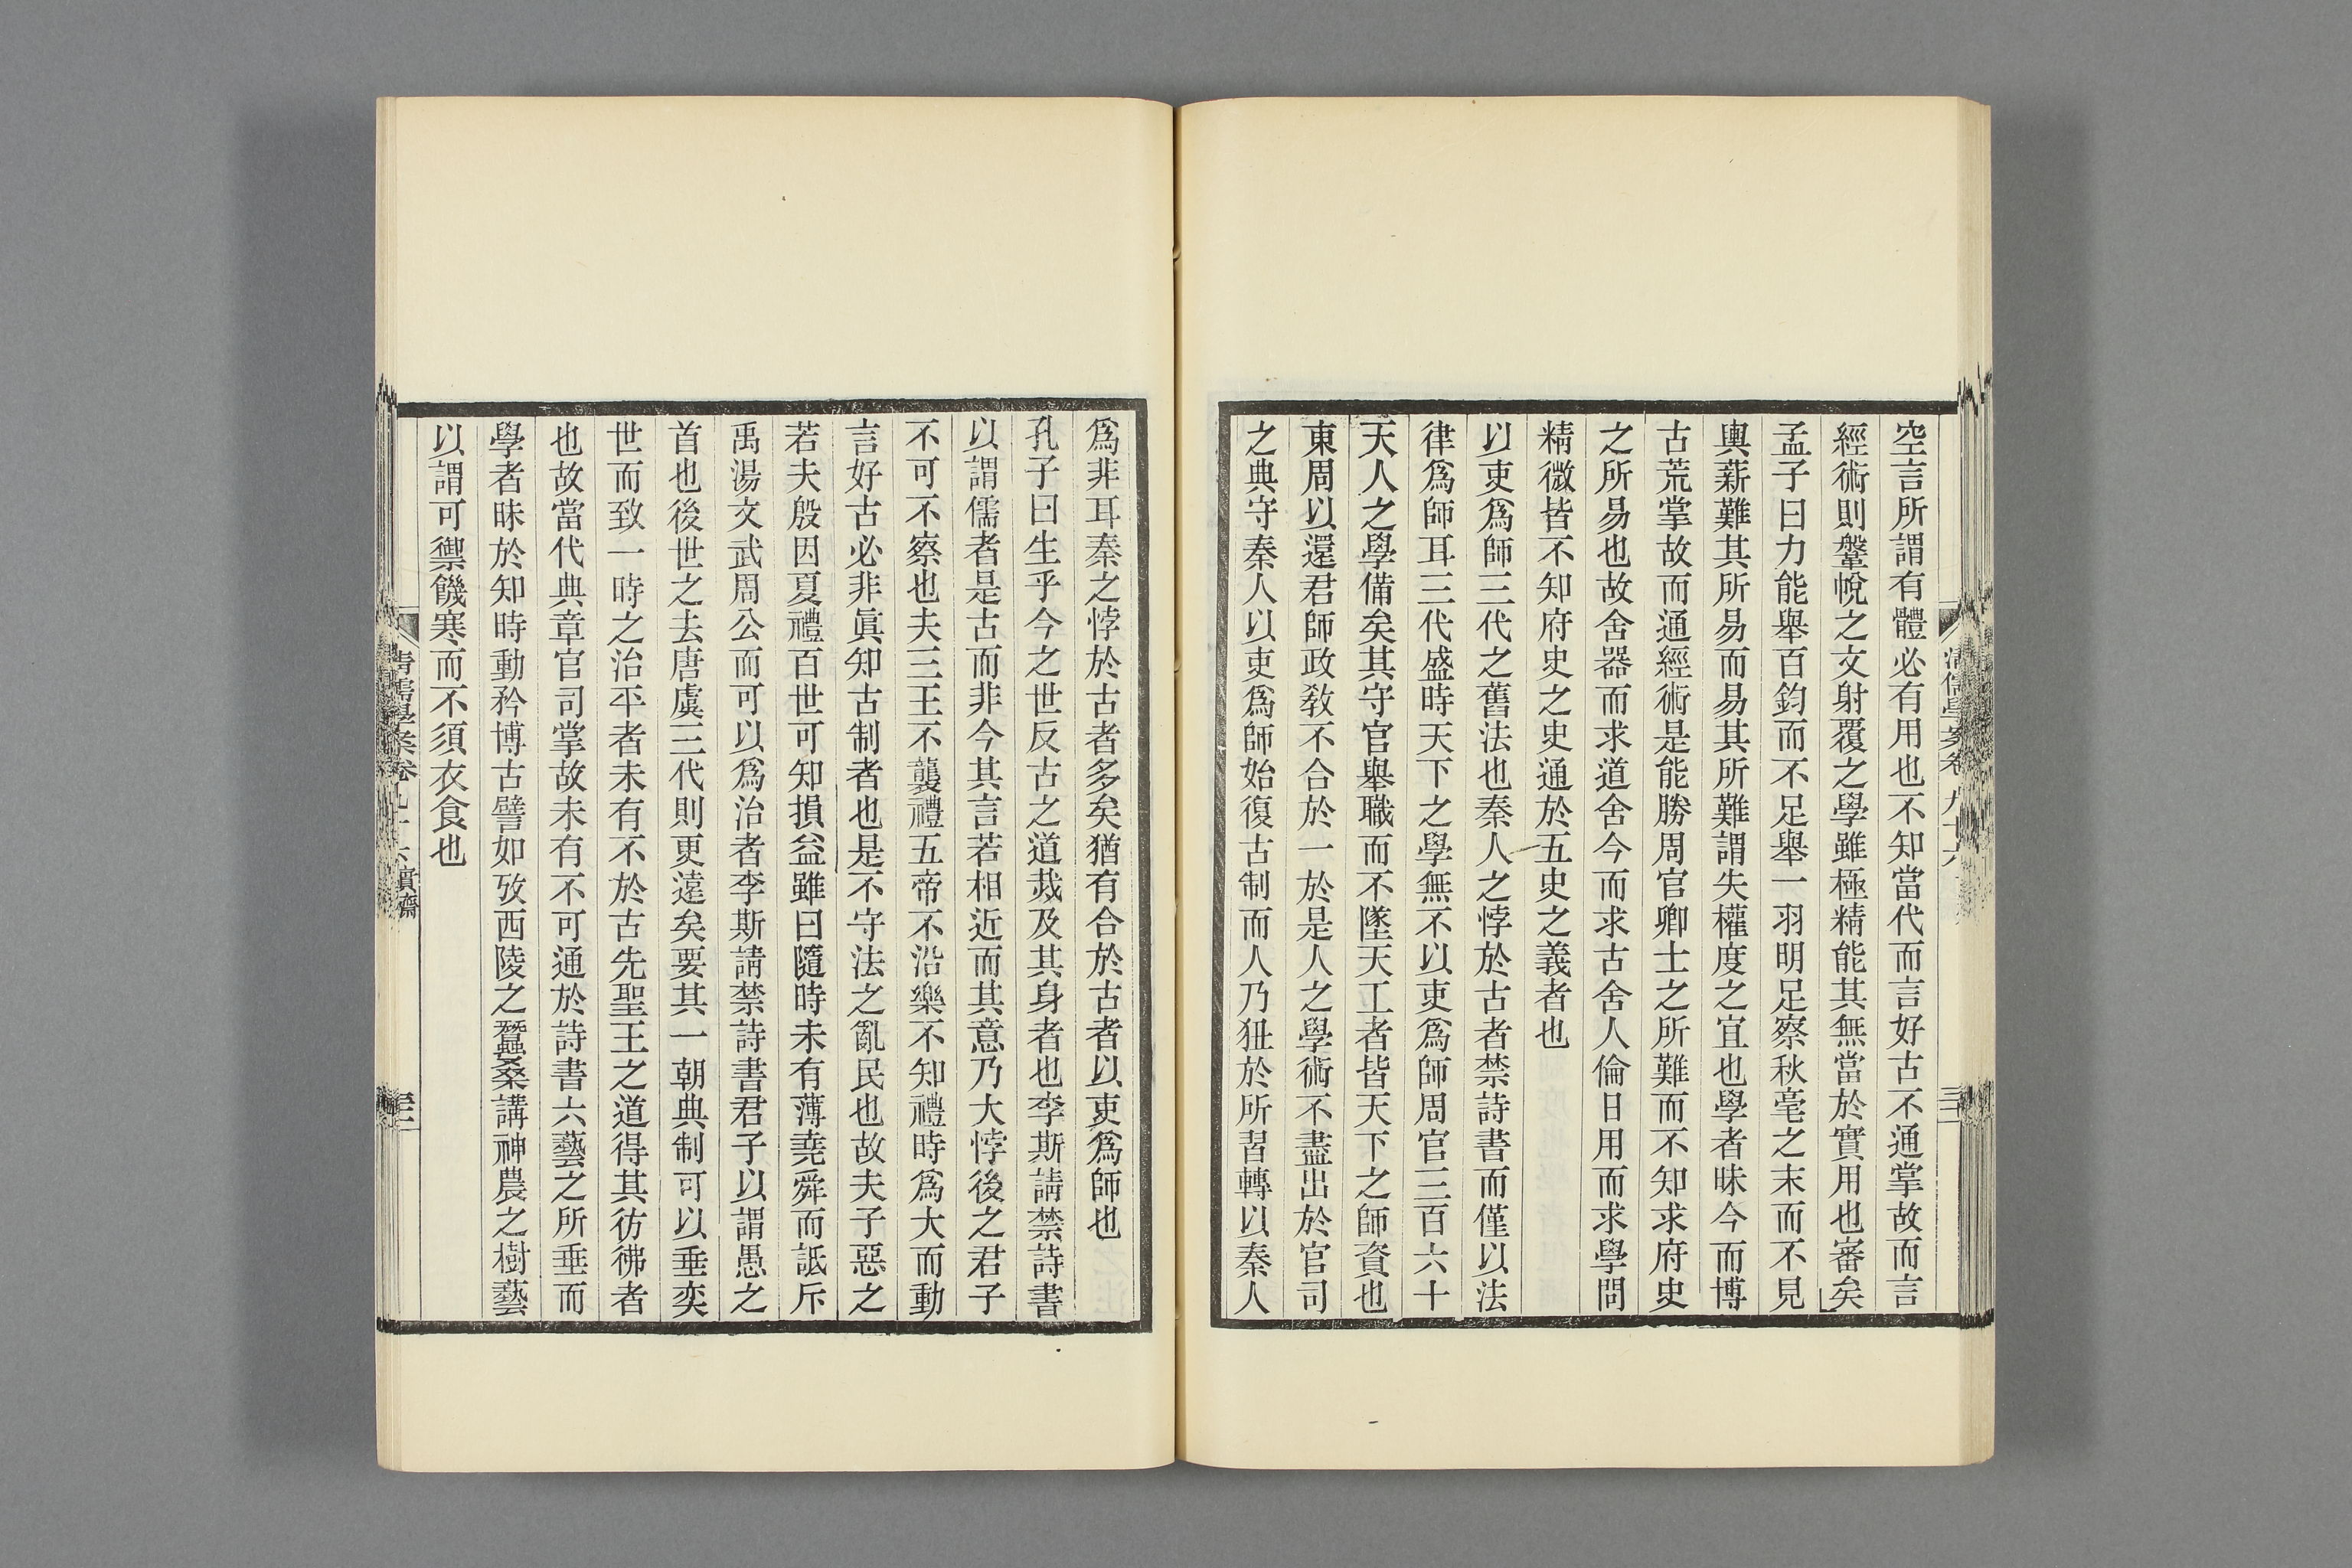 空言所謂有體必有用也不知當代而言好古不通掌故而言
經術則鞶帨之文射覆之學雖極精能其無當於實用也審矣
孟子曰力能舉百鈞而不足舉一羽明足察秋毫之末而不見
輿薪難其所易而易其所難謂失權度之宜也學者昧今而博
古荒掌故而通經術是能勝周官卿士之所難而不知求府史
之所易也故舍器而求道舍今而求古舍人倫日用而求學問
精微皆不知府史之史通於五史之義者也
以吏爲師三代之舊法也秦人之悖於古者禁詩書而僅以法
律爲師耳三代盛時天下之學無不以吏爲師周官三百六十
天人之學備矣其守官舉職而不墜天工者皆天下之師資也
東周以還君師政敎不合於一於是人之學術不盡出於官司
之典守秦人以吏爲師始復古制而人乃狃於所習轉以秦人
爲非耳秦之悖於古者多矣猶有合於古者以吏爲師也
孔子曰生乎今之世反古之道烖及其身者也李斯請禁詩書
以謂儒者是古而非今其言若相近而其意乃大悖後之君子
不可不察也夫三王不襲禮五帝不沿樂不知禮時爲大而動
言好古必非眞知古制者也是不守法之亂民也故夫子惡之
若夫殷因夏禮百世可知損益雖曰隨時未有薄堯舜而詆斥
禹湯文武周公而可以爲治者李斯請禁詩書君子以謂愚之
首也後世之去唐虞三代則更遠矣要其一朝典制可以垂奕
世而致一時之治平者未有不於古先聖王之道得其彷彿者
也故當代典章官司掌故未有不可通於詩書六藝之所垂而
學者昧於知時動矜博古譬如攷西陵之蠶桑講神農之樹藝
以謂可禦饑寒而不須衣食也
清儒學案卷九十六 實齋